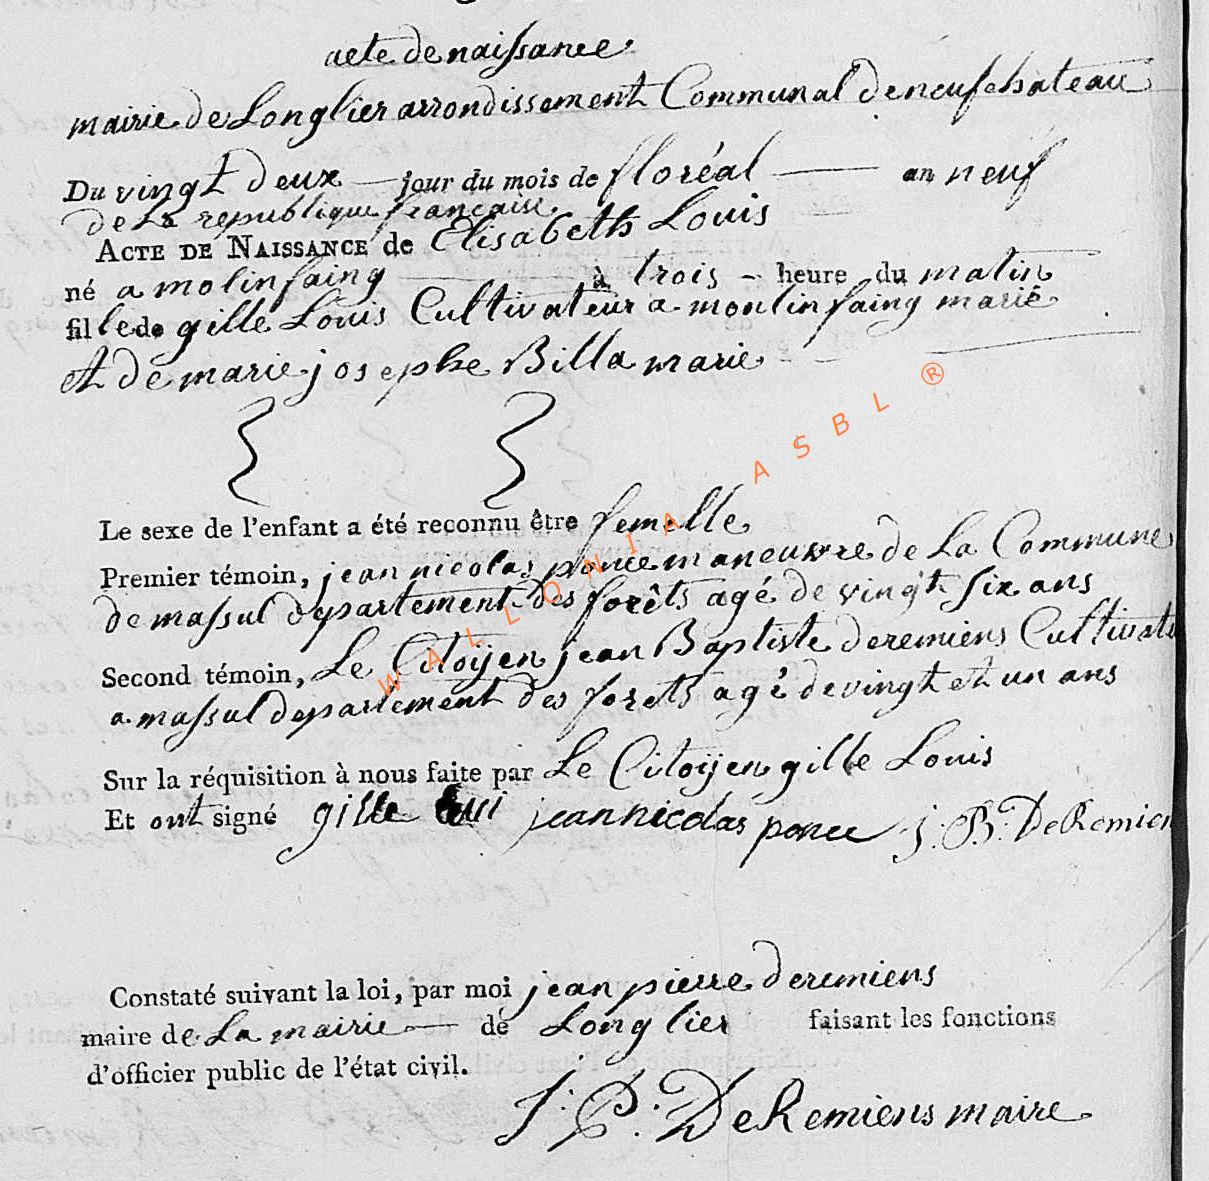 acte de naissance
mairie de Longlier arrondissement Communal de neufchateau
Du vingt deux jour du mois de floréal an neuf
de La republique française
ACTE DE NAISSANCE de Elisabeth Louis
né a molinfaing à trois heure du matin
fille de gille Louis Cultivateur a moulinfaing marié
et de marie josephe Billa marie
Le sexe de l'enfant a été reconnu être femelle
Premier témoin, jean nicolas ponce maneuvre de La Commune
de massul departement des forêts agé de vingt six ans
Second témoin, Le Citoijen jean Baptiste deremiens Cultivate
a massul departement des forets agé de vingt et un ans
Sur la réquisition à nous faite par Le Citoijen gille Louis
Et ont signé gille Lui jean nicolas ponce J. B. DeRemien
Constaté suivant la loi, par moi jean pierre deremiens
maire de La mairie de Longlier faisant les fonctions
d'officier public de l'état civil.
J. P. DeRemiens maire
WALLONIA ASBL ®